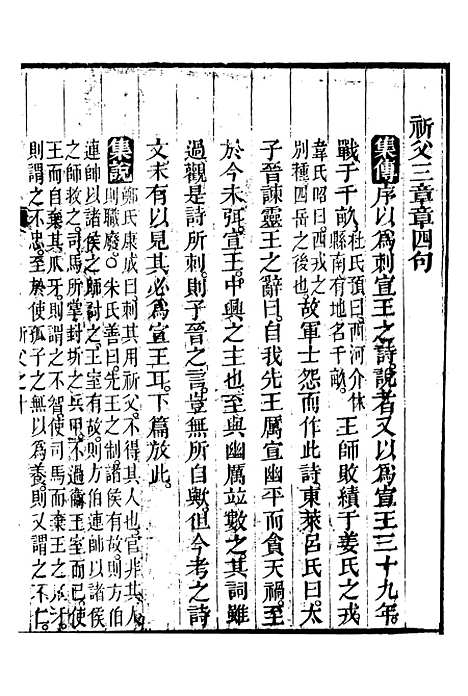 祈父三章章四句
集傳序以爲刺宣王之詩說者又以爲宣王三十九年
戰于千畝杜氏預曰西河介休縣南有地名千畝王師敗績于姜氏之戎
韋氏昭曰西戎之別種四岳之後也故軍士怨而作此詩東萊呂氏曰太
子晉諫靈王之辭曰自我先王厲宣幽平而貪天禍至
於今未弭宣王中興之主也至與幽厲竝數之其詞雖
過觀是詩所刺則子晉之言豈無所自歟但今考之詩
文未有以見其必爲宣王耳下篇放此
集說鄭氏康成曰刺其用祈父不得其人也官非其人
則職廢○朱氏善曰先王之制諸侯有故則方伯
連帥以諸侯之師討之王室有故則方伯連師以諸侯
之師救之司馬所掌封圻之兵甲不過衞王室而已使
王而自棄其爪牙則謂之不智使司馬而棄王之爪牙
則謂之不忠至於使孤子之無以爲養則又謂之不仁
祈父之什